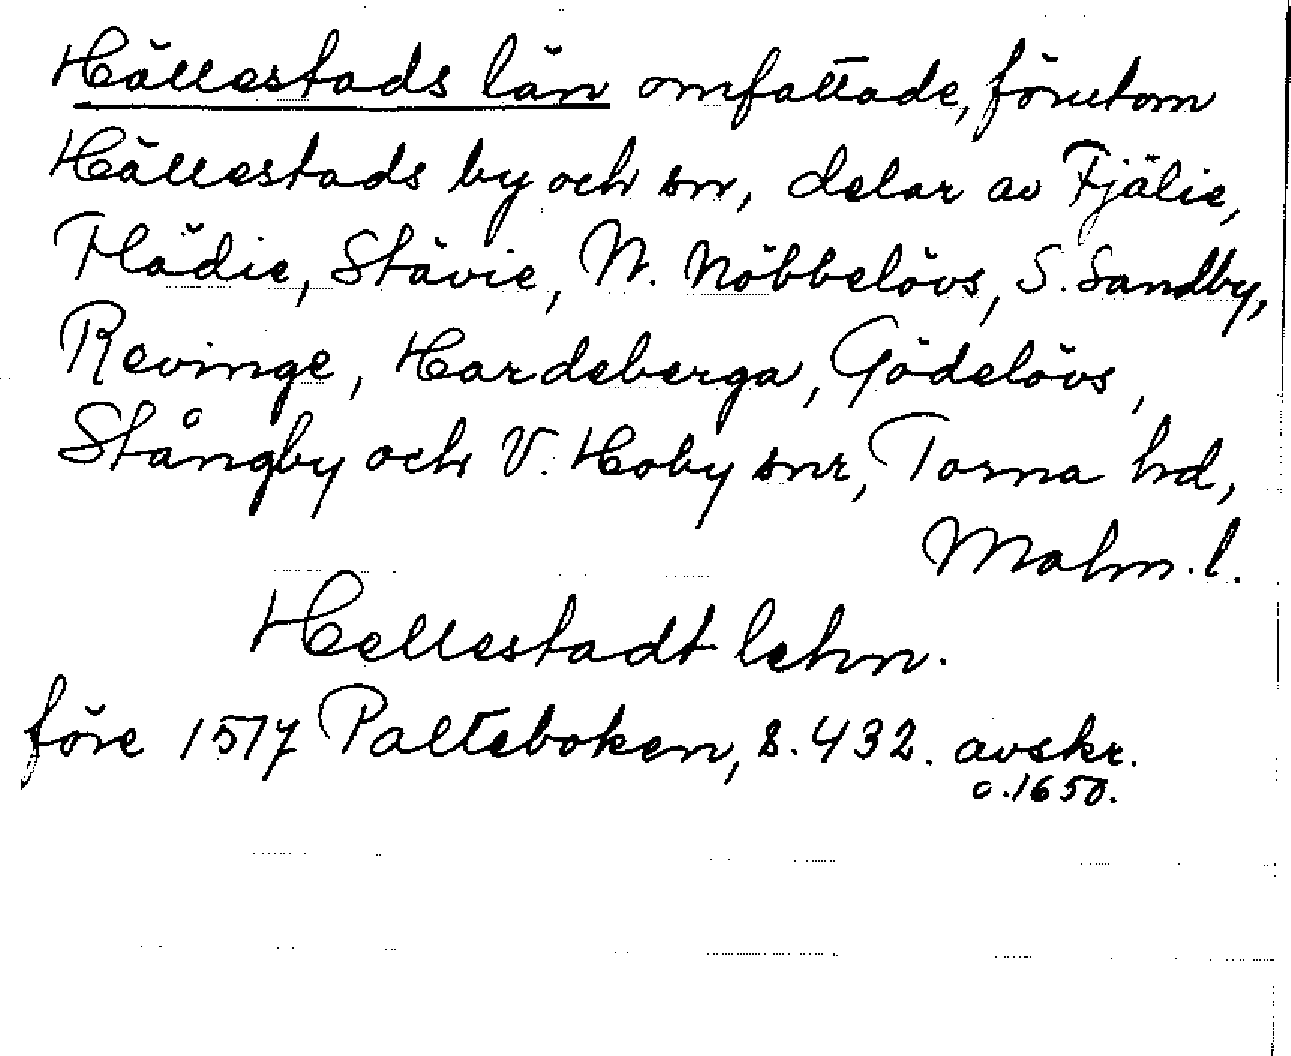 Hällestads län omfattade, förutom
Hällestads by och sn, delar av Fjälie,
Flädie, Stävie, N. Nöbbelövs, S. Sandby,
Revinge, Hardeberga, Gödelövs,
Stångby och V. Hoby snr, Torna hd,
Malm. l.
Hellestadt lehn.
före 1517 Palteboken, s. 432. avskr.
c. 1650.